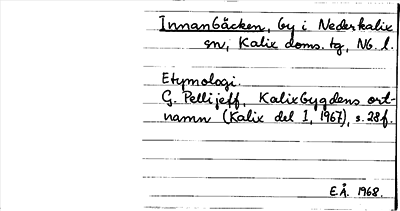 Innanbäcken, by i Nederkalix
sn, Kalix doms. tg, Nb. l.
Etymologi.
G. Pellijeff, Kalixbygdens ort-
namn (Kalix del I, 1967), s. 28f.
E.Å. 1968.